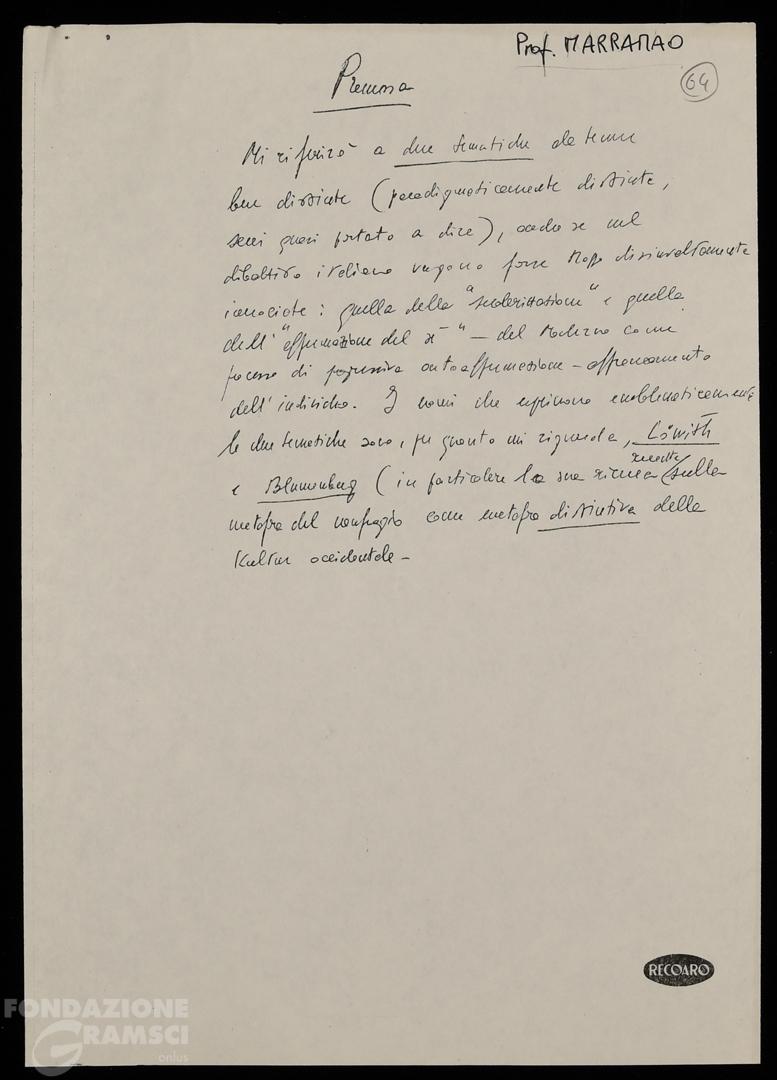 Prof. MARRAMAO
64
Premessa
Mi riferirò a due tematiche da tenere
ben distinte (paradigmaticamente distinte,
sarei quasi portato a dire), anche se nel
dibattito italiano vengono forse troppo disinvoltamente
incrociate: quella della "secolarizzazione" e quella
dell'"affermazione del" — del Moderno come
processo di progressiva autoaffermazione – affrancamento
dell'individuo. I nomi che esprimono emblematicamente
le due tematiche sono, per quanto mi riguarda, Löwith
e Blumenberg (in particolare la sua ricerca recente sulla
metafora del naufragio come metafora distintiva della
Kultur occidentale –
RECOARO
FONDAZIONE
GRAMSCI
onlus